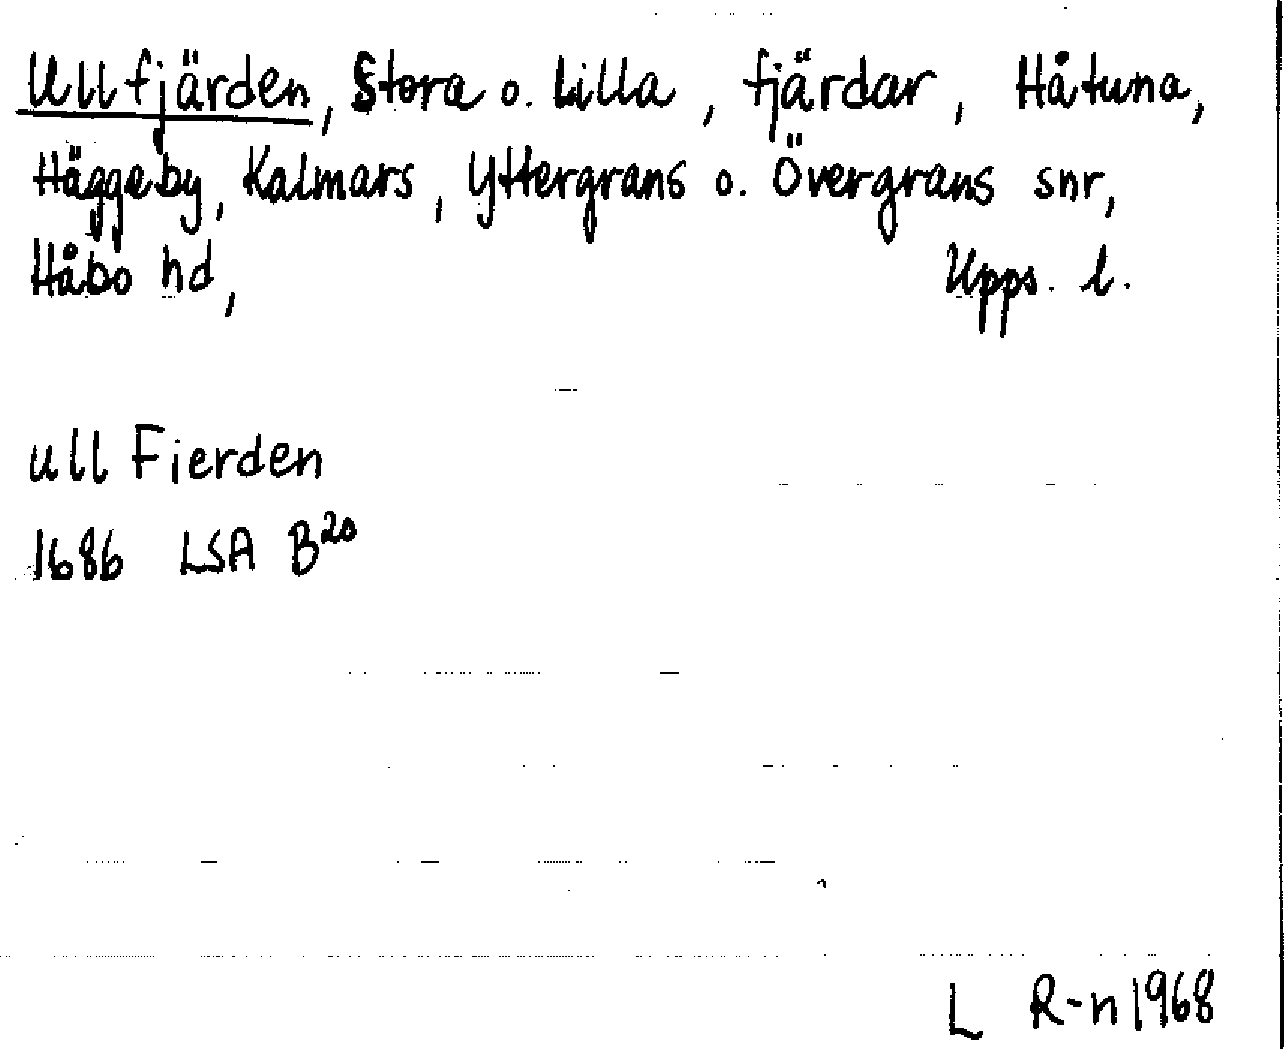 Ullfjärden, Stora o. Lilla, fjärdar, Håtuna,
Häggeby, Kalmars, Yttergrans o. Övergrans snr,
Håbo hd, Upps. l.
ull Fierden
1686 LSA B20
L R-n 1968